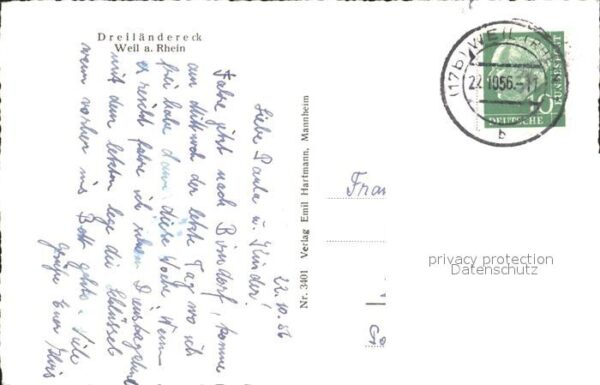 Dreiländereck
Weil a. Rhein
22.10.56
Liebe Paula u. Kinder!
Fahre jetzt nach Binsdorf, komme
am Mittwoch der letzte Tag wo ich
frei habe dann diese Woche. Wenn
es reicht fahre ich schon
mit dem letzten lege die Schlüssel
wenn vorher ins Bett gehts. Viele
Grüße Euer
Nr. 3401 Verlag Emil Hartmann, Mannheim
(17b) WEIL (RHEIN)
22.10.56.-11
b
DEUTSCHE
BUNDESPOST
Frau
privacy protection
Datenschutz